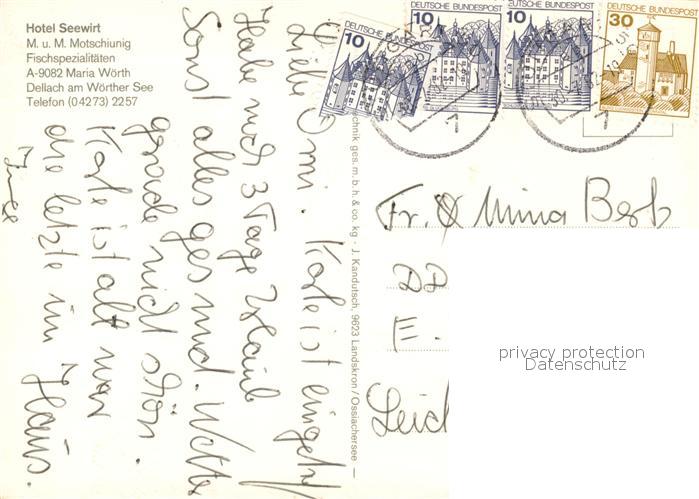 Hotel Seewirt
M. u. M. Motschiunig
Fischspezialitäten
A-9082 Maria Wörth
Dellach am Wörther See
Telefon (04273) 2257
10 DEUTSCHE BUNDESPOST
10 DEUTSCHE BUNDESPOST
10 DEUTSCHE BUNDESPOST
30 DEUTSCHE BUNDESPOST
Liebe Omi. Karte ist
Habe noch 3 Tage Urlaub
Sonst alles gesund. Wetter
gerade nicht schön.
Karte ist alt war
die letzte im Haus.
technik ges. m. b. h. & co. kg · J. Kanduts­ch, 9623 Landskron/Ossiachersee —
Fr. Minna
E.
privacy protection
Datenschutz